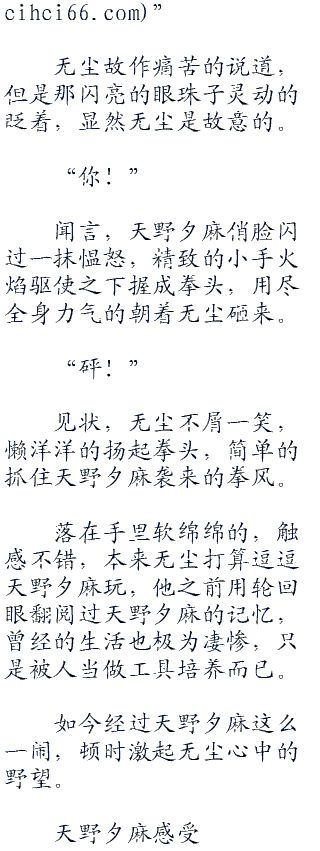 cihci66.com)”
无尘故作痛苦的说道，
但是那闪亮的眼珠子灵动的
眨着，显然无尘是故意的。
“你！”
闻言，天野夕麻俏脸闪
过一抹愠怒，精致的小手火
焰驱使之下握成拳头，用尽
全身力气的朝着无尘砸来。
“砰！”
见状，无尘不屑一笑，
懒洋洋的扬起拳头，简单的
抓住天野夕麻袭来的拳风。
落在手里软绵绵的，触
感不错，本来无尘打算逗逗
天野夕麻玩，他之前用轮回
眼翻阅过天野夕麻的记忆，
曾经的生活也极为凄惨，只
是被人当做工具培养而已。
如今经过天野夕麻这么
一闹，顿时激起无尘心中的
野望。
天野夕麻感受